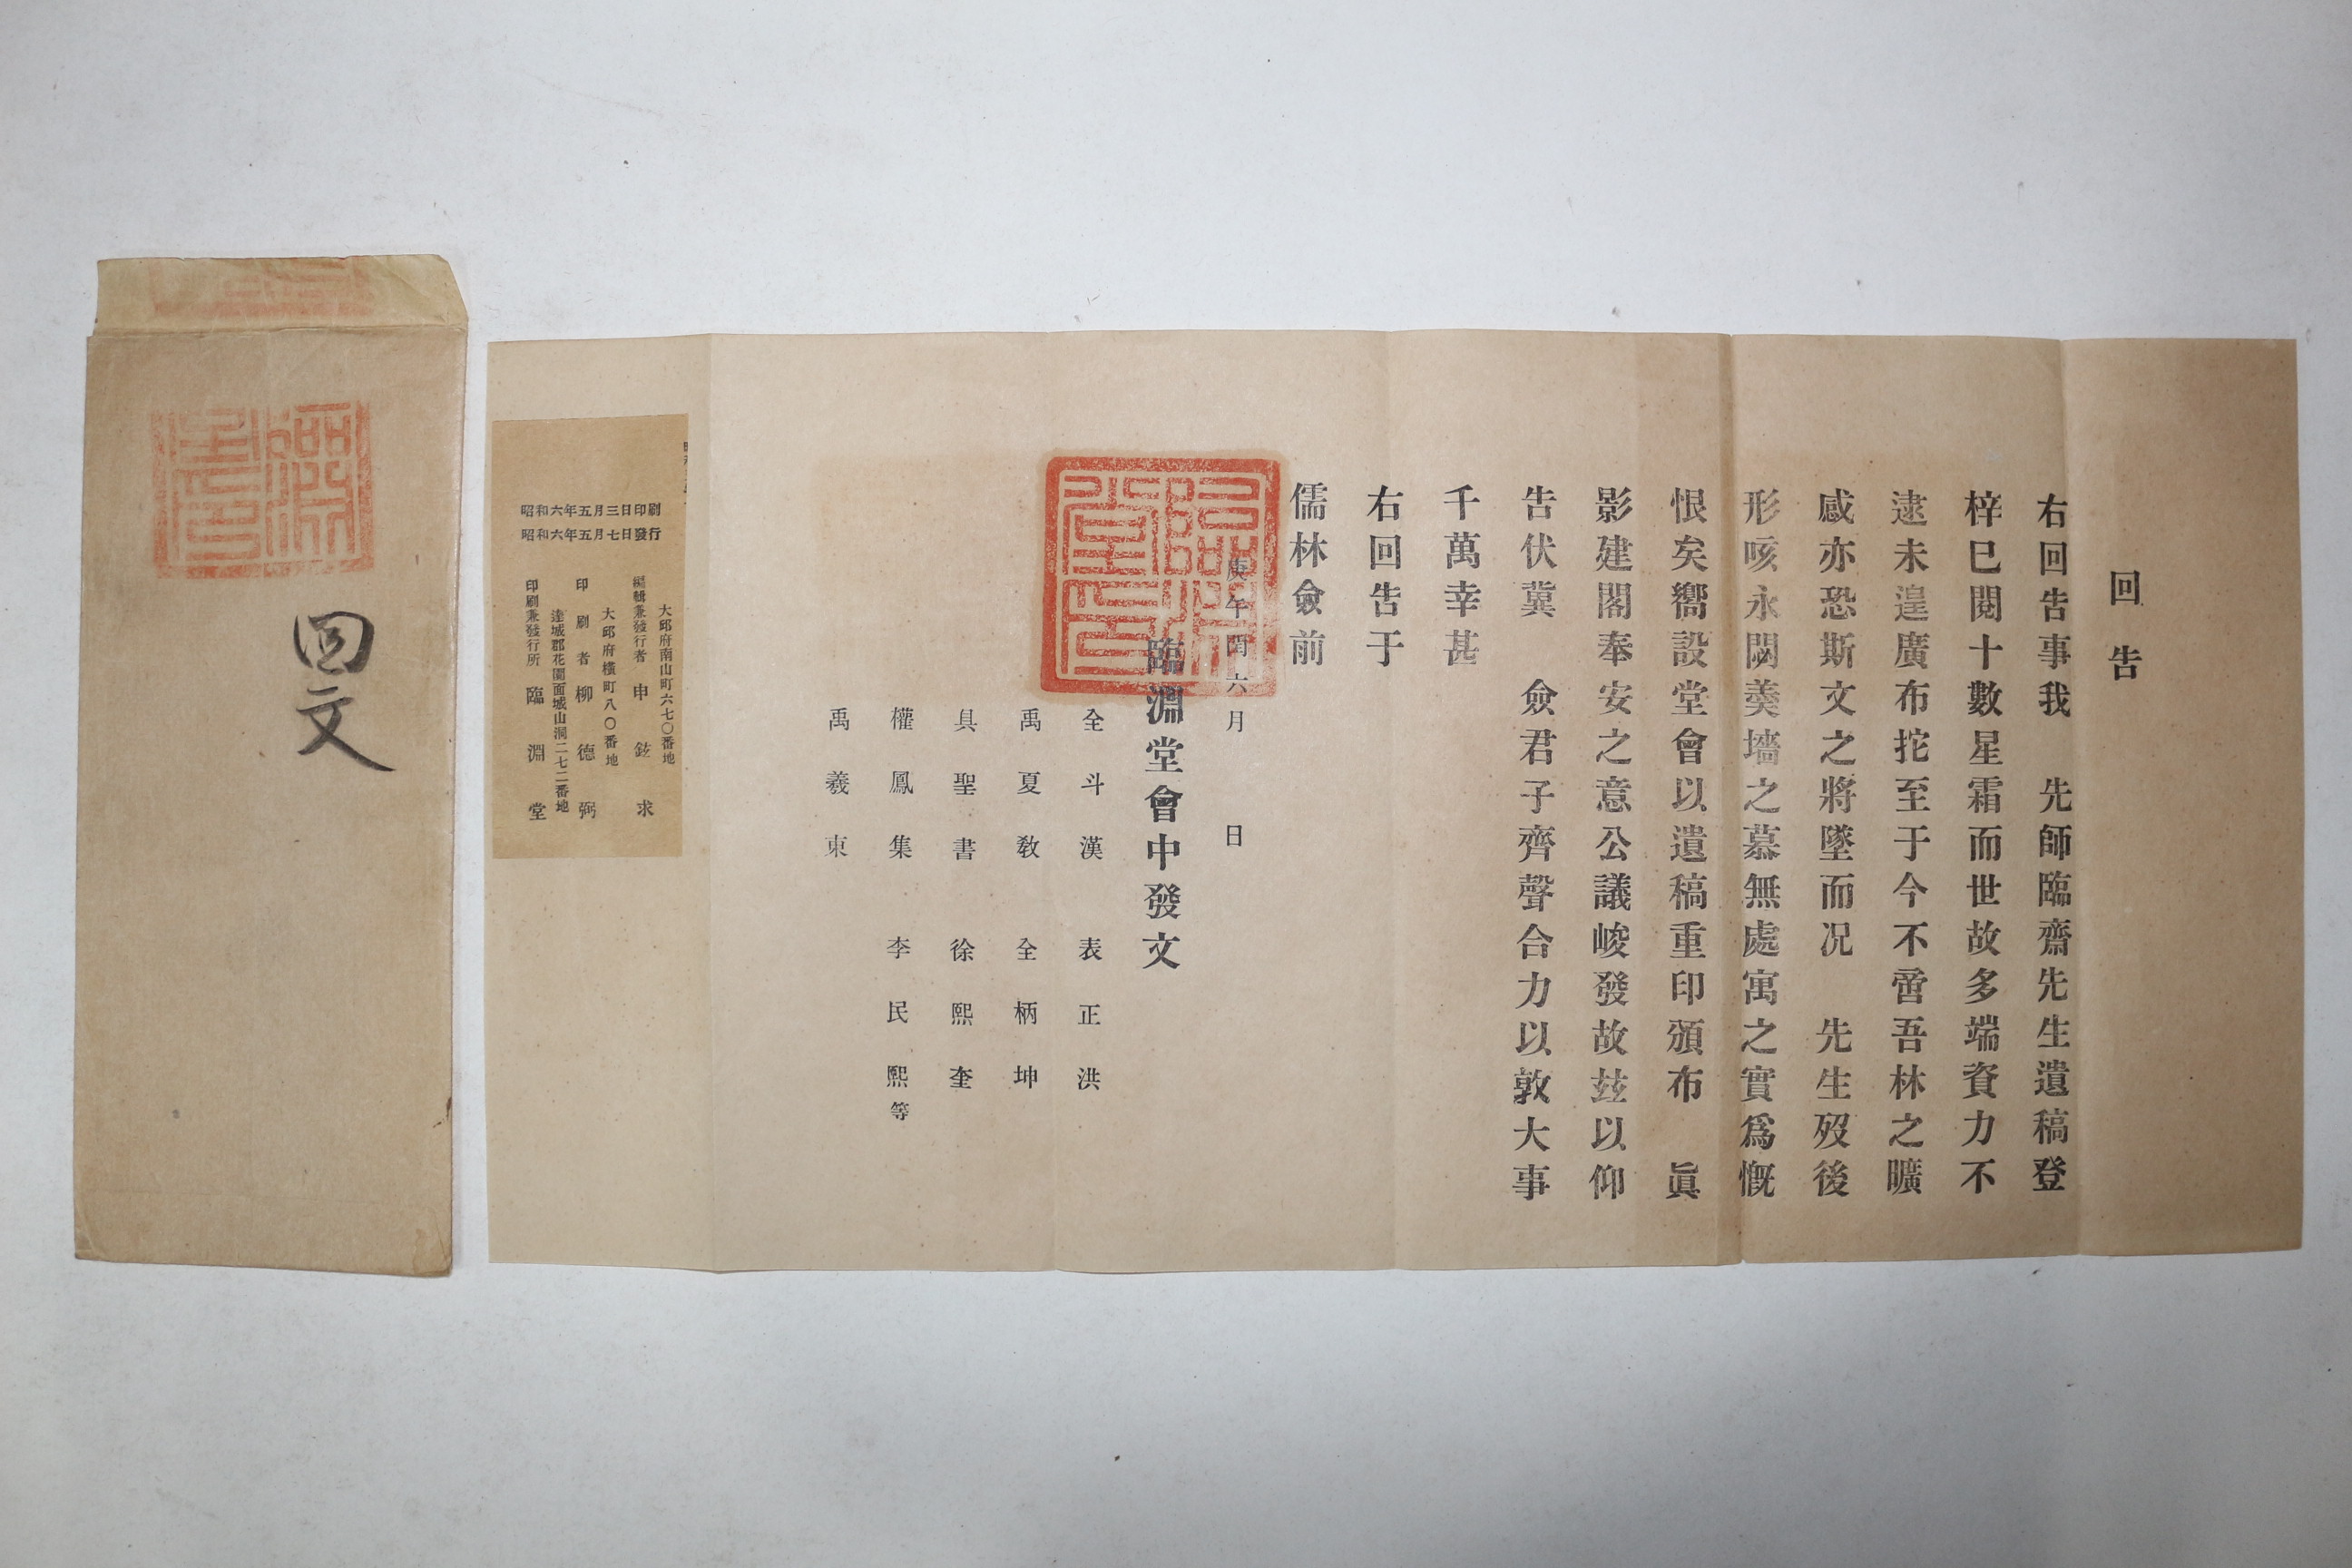 回告
右回告事我　先師臨齋先生遺稿登
梓巳閱十數星霜而世故多端資力不
逮未遑廣布拕至于今不啻吾林之曠
感亦恐斯文之將墜而况　先生歿後
形咳永閟羹墻之慕無處寓之實爲慨
恨矣嚮設堂會以遺稿重印頒布　眞
影建閣奉安之意公議峻發故玆以仰
告伏冀　僉君子齊聲合力以敦大事
千萬幸甚
右回告于
儒林僉前
庚午閏六月　日
臨淵堂會中發文
全斗漢　表正洪
禹夏敎　全柄坤
具聖書　徐熙奎
權鳳集　李民熙等
禹羲東
昭和六年五月三日印刷
昭和六年五月七日發行
大邱府南山町六七〇番地
編輯兼發行者　申鉉求
大邱府橫町八〇番地
印刷者　柳德弼
達城郡花園面城山洞二七二番地
印刷兼發行所　臨淵堂
回文